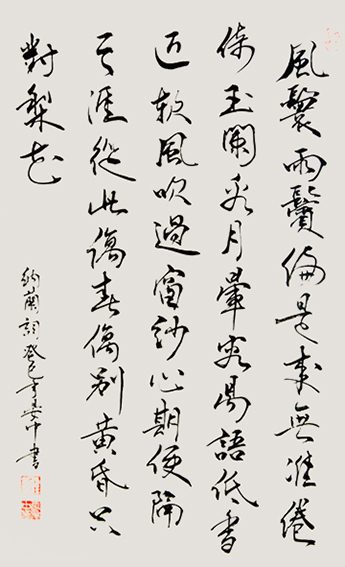 風鬟雨鬢偏是來無准倦
倚玉闌看月暈容易語低香
近軟風吹過窗紗心期便隔
天涯從此傷春傷別黄昏只
對梨花
納蘭詞癸巳年中書